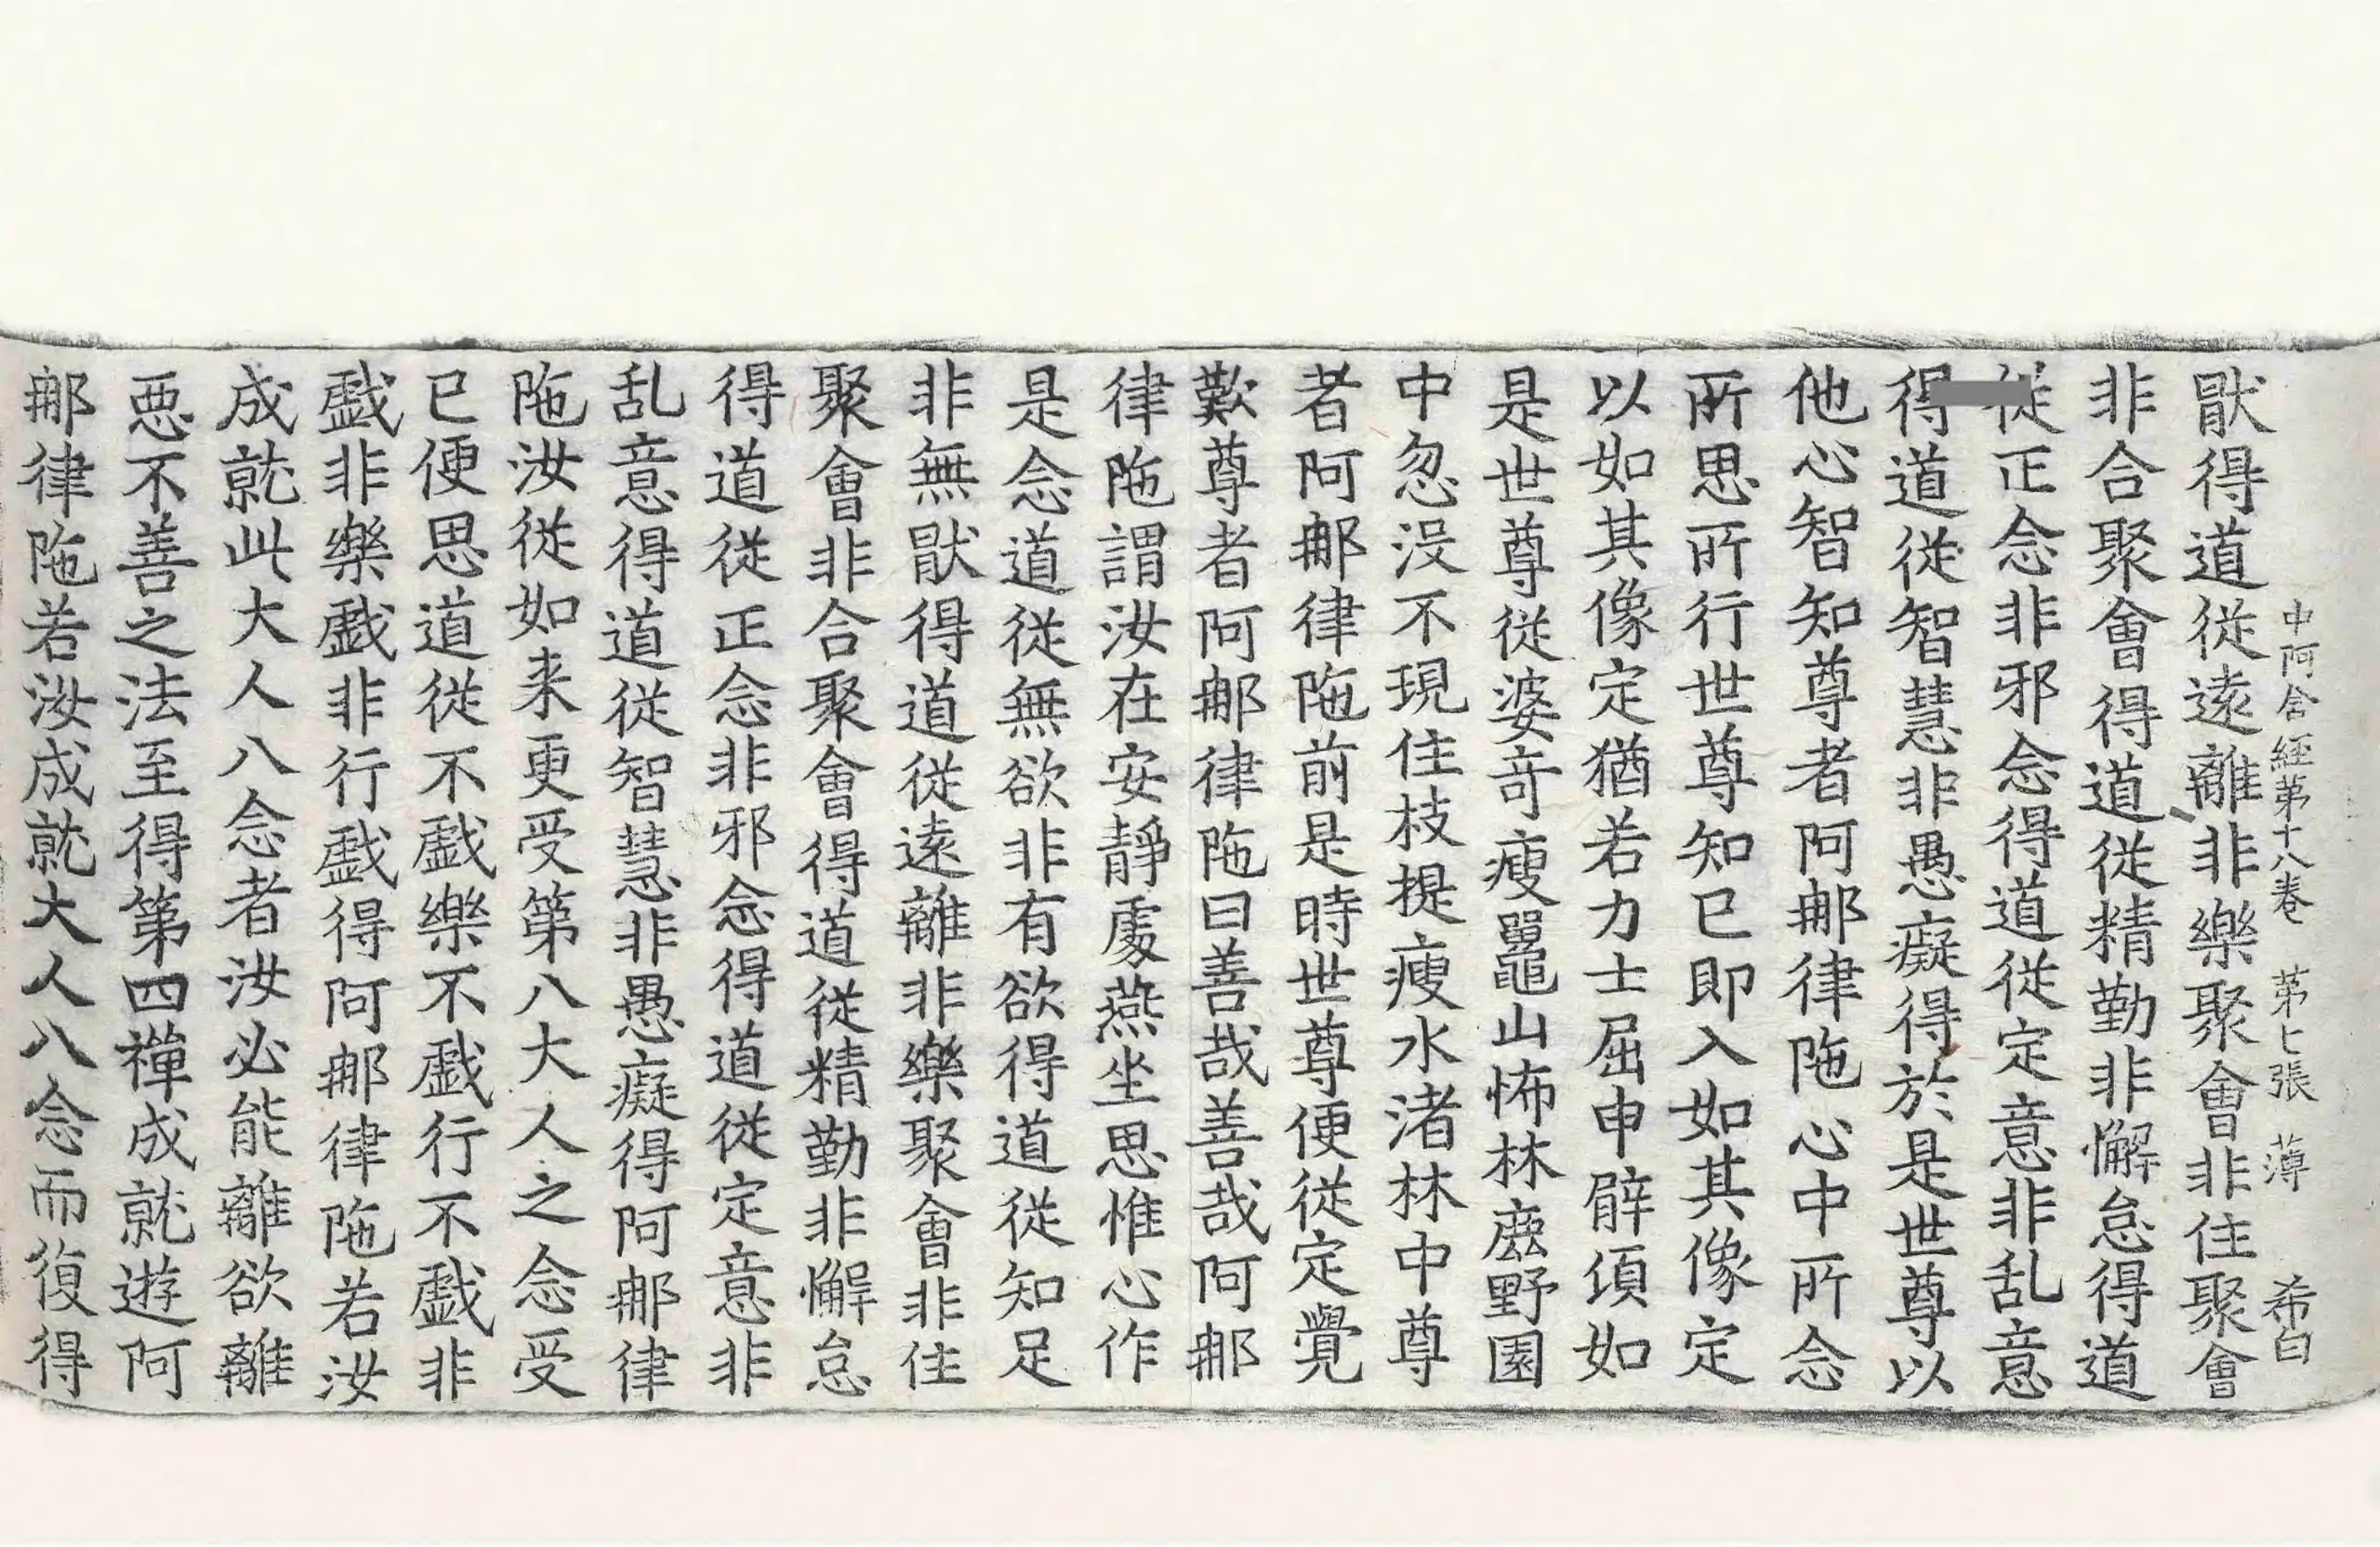 中阿含經第十八卷 第七張 薄 希白
猒得道從遠離非樂聚會非住聚會
非合聚會得道從精勤非懈怠得道
從正念非邪念得道從定意非乱意
得道從智慧非愚癡得於是世尊以
他心智知尊者阿那律陁心中所念
所思所行世尊知已即入如其像定
以如其像定猶若力士屈申臂頃如
是世尊從婆奇瘦鼉山怖林鹿野園
中忽没不現住枝提瘦水渚林中尊
者阿那律陁前是時世尊便從定覺
歎尊者阿那律陁曰善哉善哉阿那
律陁謂汝在安靜處燕坐思惟心作
是念道從無欲非有欲得道從知足
非無猒得道從遠離非樂聚會非住
聚會非合聚會得道從精勤非懈怠
得道從正念非邪念得道從定意非
乱意得道從智慧非愚癡得阿那律
陁汝從如来更受第八大人之念受
已便思道從不戱樂不戱行不戱非
戱非樂戱非行戱得阿那律陁若汝
成就此大人八念者汝必能離欲離
惡不善之法至得第四禪成就遊阿
那律陁若汝成就大人八念而復得